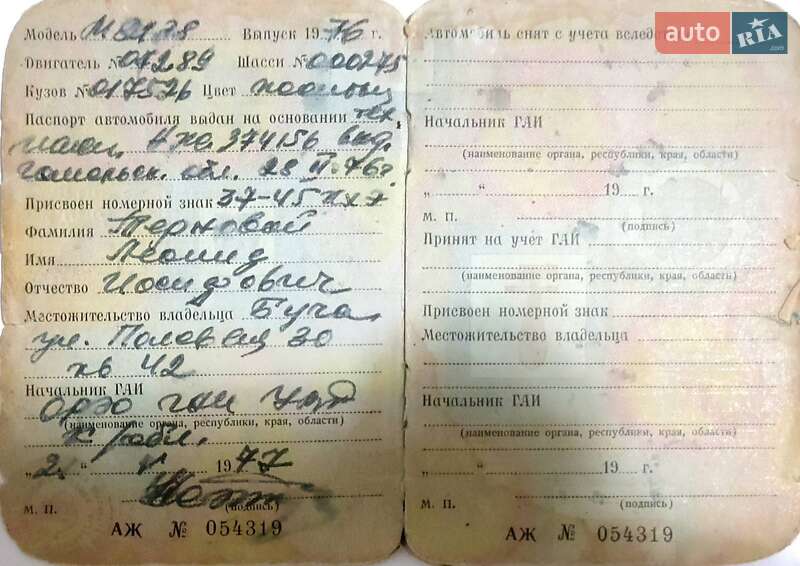 Модель М 2138 Выпуск 1976 г.
Двигатель № 07289 Шасси № 000275
Кузов № 017526 Цвет
Паспорт автомобиля выдан на основании тех.
374156 выд.
обл. 28 76г
Присвоен номерной знак 37-45
Фамилия Терновой
Имя Леонид
Отчество Иосифович
Местожительство владельца Буча
ул. 30
кв 42
Начальник ГАИ
ГАИ
(наименование органа, республики, края, области)
обл.
„2 “ 1977
М. П. (подпись)
АЖ № 054319
Автомобиль снят с учета вследст
auto RIA .com
Начальник ГАИ
(наименование органа, республики, края, области)
„ “ 19 г.
М. П. (подпись)
Принят на учет ГАИ
(наименование органа, республики, края, области)
Присвоен номерной знак
Местожительство владельца
Начальник ГАИ
(наименование органа, республики, края, области)
„ “ 19 г.
М. П. (подпись)
АЖ № 054319